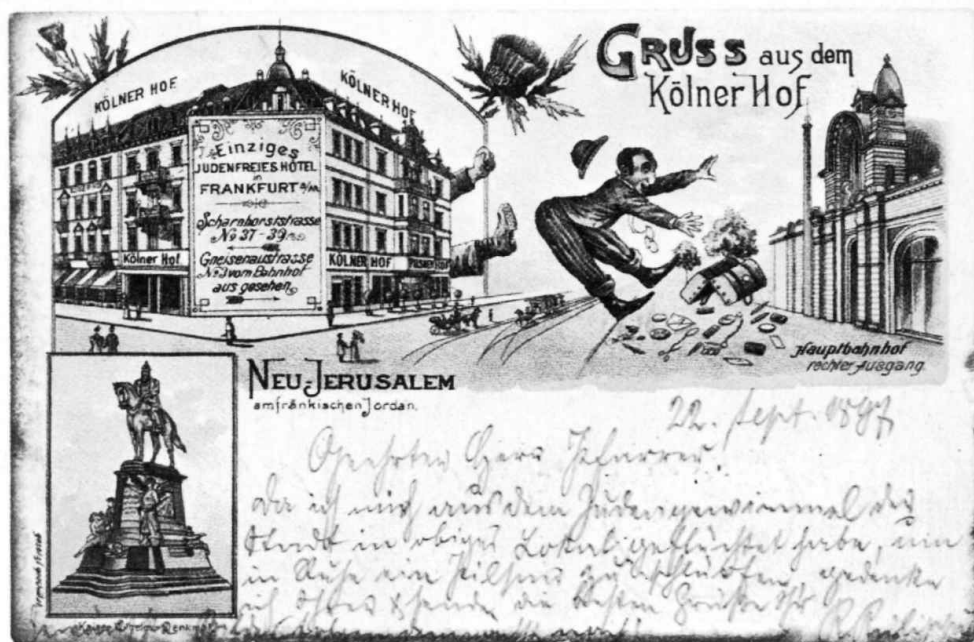 GRUSS aus dem
Kölner Hof
KÖLNER HOF
KÖLNER HOF
Einziges
JUDENFREIES HÔTEL
in
FRANKFURT a/M.
Scharnhorststrasse
No 37-39
Gneisenaustrasse
vom Bahnhof
aus gesehen
Kölner Hof
KÖLNER HOF
Hauptbahnhof
rechter Ausgang.
NEU-JERUSALEM
am fränkischen Jordan.
22. Sept. 1897
Geehrter Herr
Da ich mich aus dem Judengewimmel der
Stadt in obiges Lokal geflüchtet habe, um
in Ruhe ein Pilsner zu schlürfen, gedenke
ich die besten Grüße
Kaiser Wilhelm-Denkmal